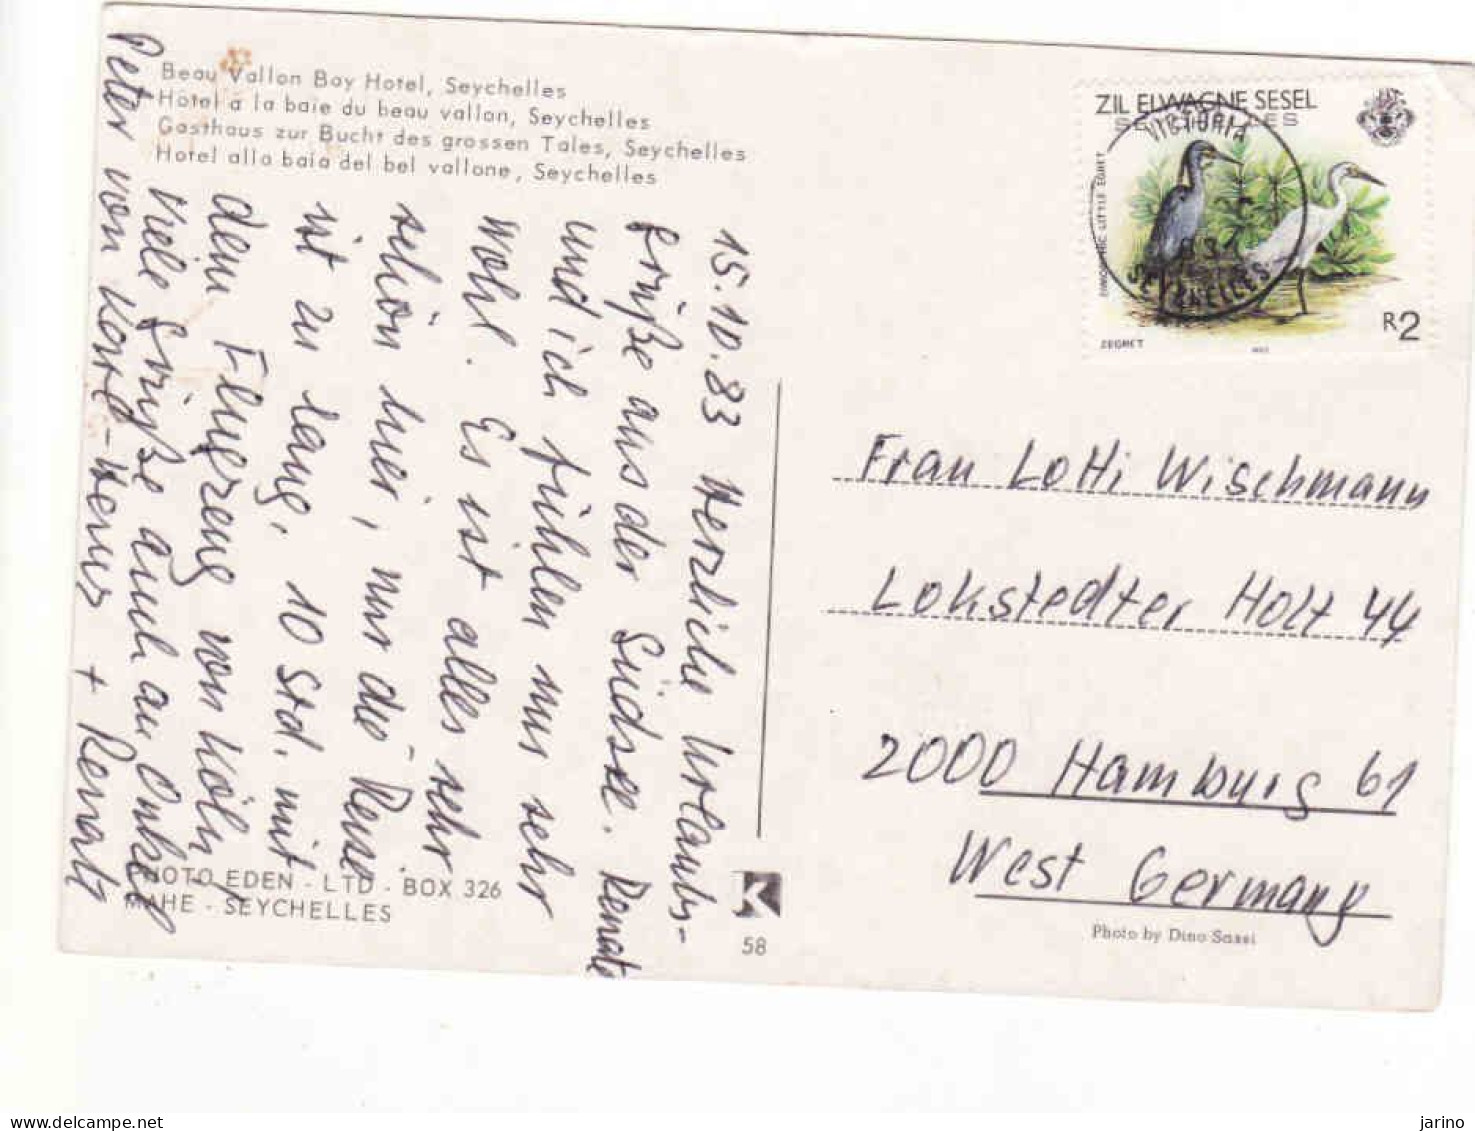 Beau Vallon Bay Hotel, Seychelles
Hôtel à la baie du beau vallon, Seychelles
Gasthaus zur Bucht des grossen Tales, Seychelles
Hotel alla baia del bel vallone, Seychelles
15.10.83 Herzliche Urlaubs-
grüße aus der Südsee. Renate
und ich fühlen uns sehr
wohl. Es ist alles sehr
schön hier, nur die Reise
ist zu lang. 10 Std. mit
dem Flugzeug von Köln
Viele Grüße auch an Onkel
Peter von Karl-Heinz + Renate
PHOTO EDEN - LTD - BOX 326
MAHE - SEYCHELLES
K
58
ZIL ELWAGNE SESEL
SEYCHELLES
VICTORIA
SEYCHELLES
DIMORPHIC LITTLE EGRET
ZEGRET
R2
Frau Lotti Wischmann
Lokstedter Holt 44
2000 Hamburg 61
West Germany
Photo by Dino Sassi